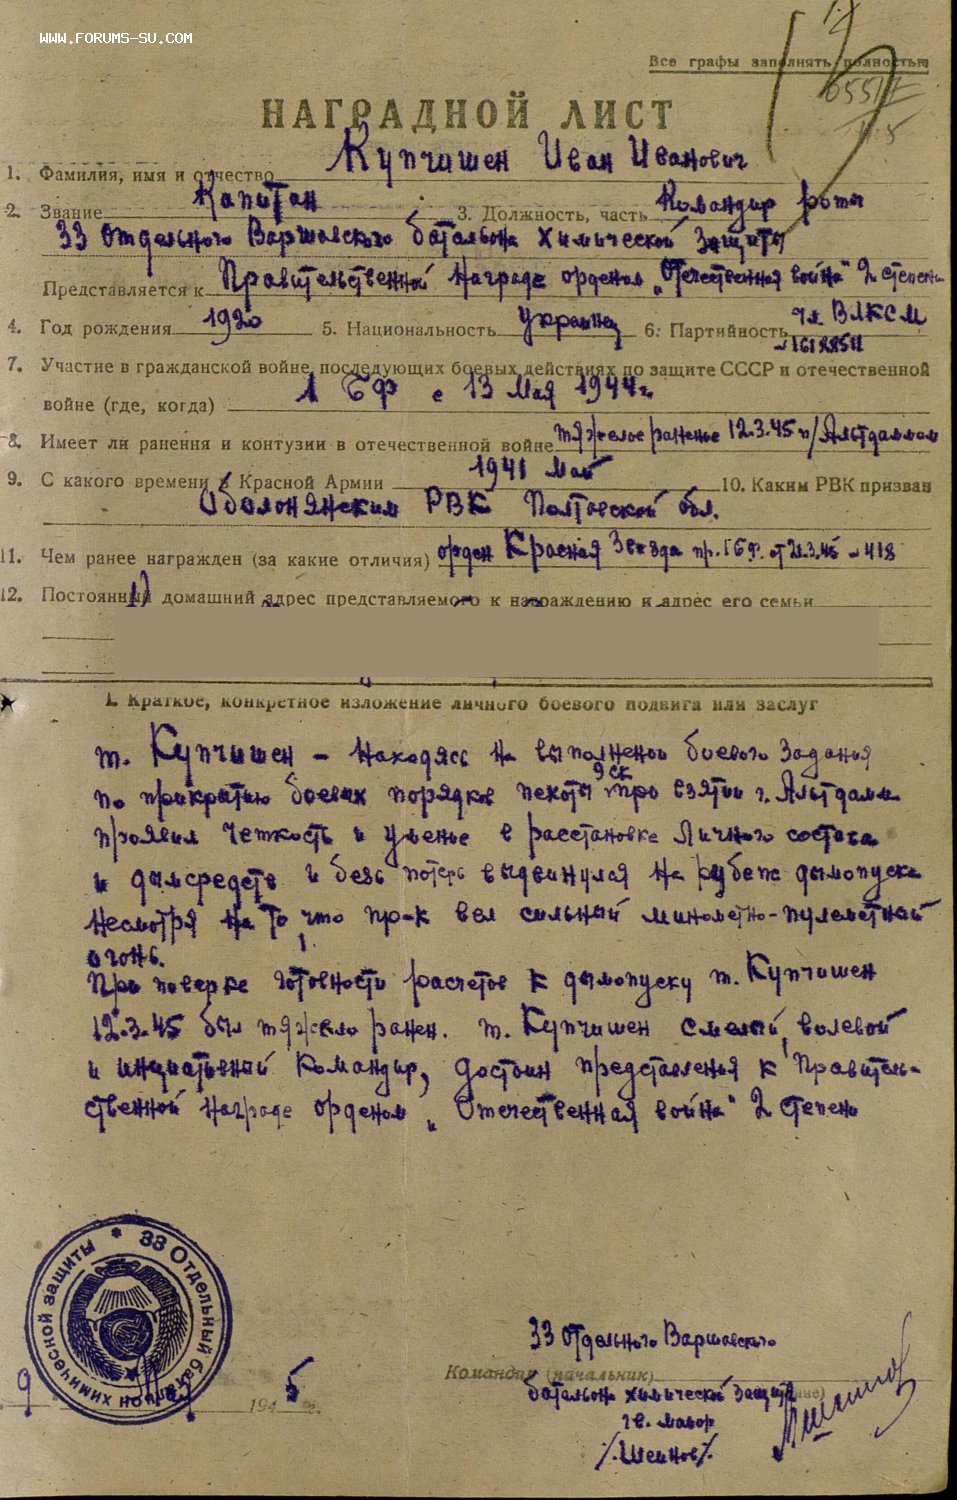 WWW.FORUMS-SU.COM
Все графы заполнять полностью
НАГРАДНОЙ ЛИСТ
1. Фамилия, имя и отчество Купчишен Иван Иванович
2. Звание Капитан 3. Должность, часть Командир роты
33 отдельного Варшавского батальона химической защиты
Представляется к Правительственной награде орденом „Отечественная война" 2 степени
4. Год рождения 1920 5. Национальность украинец 6. Партийность чл. ВЛКСМ
7. Участие в гражданской войне, последующих боевых действиях по защите СССР и отечественной
войне (где, когда) 1 БФ с 13 мая 1944 г.
8. Имеет ли ранения и контузии в отечественной войне тяжелое раненье 12.3.45 п/Альтдаммом
9. С какого времени в Красной Армии 1941 май 10. Каким РВК призван
Оболонянским РВК Полтовской обл.
11. Чем ранее награжден (за какие отличия) орден Красная Звезда пр.
12. Постоянный домашний адрес представляемого к награждению и адрес его семьи
1)
I. Краткое, конкретное изложение личного боевого подвига или заслуг
т. Купчишен – находясь на выполнении боевого задания
по прикратию боевых порядков пехоты 9 ск при взятии г. Альтдамм
проявил четкость и уменье в расстановке личного состава
и дымсредств и безь потерь выдвинулся на рубеж дымопуска
несмотря на то, что пр-к вел сильный минометно-пулеметный
огонь.
При поверке готовности расчетов к дымопуску т. Купчишен
12.3.45 был тяжело ранен. т. Купчишен смелый, волевой
и инциативный командир, достоин представления к Правитель-
ственной награде орденом „Отечественная война" 2 степени
33 Отдельный батальон химической защиты
9 194 5 г.
33 отдельного Варшавского
Командир (начальник)
батальона химической защиты
гв. майор
/Шеинов/